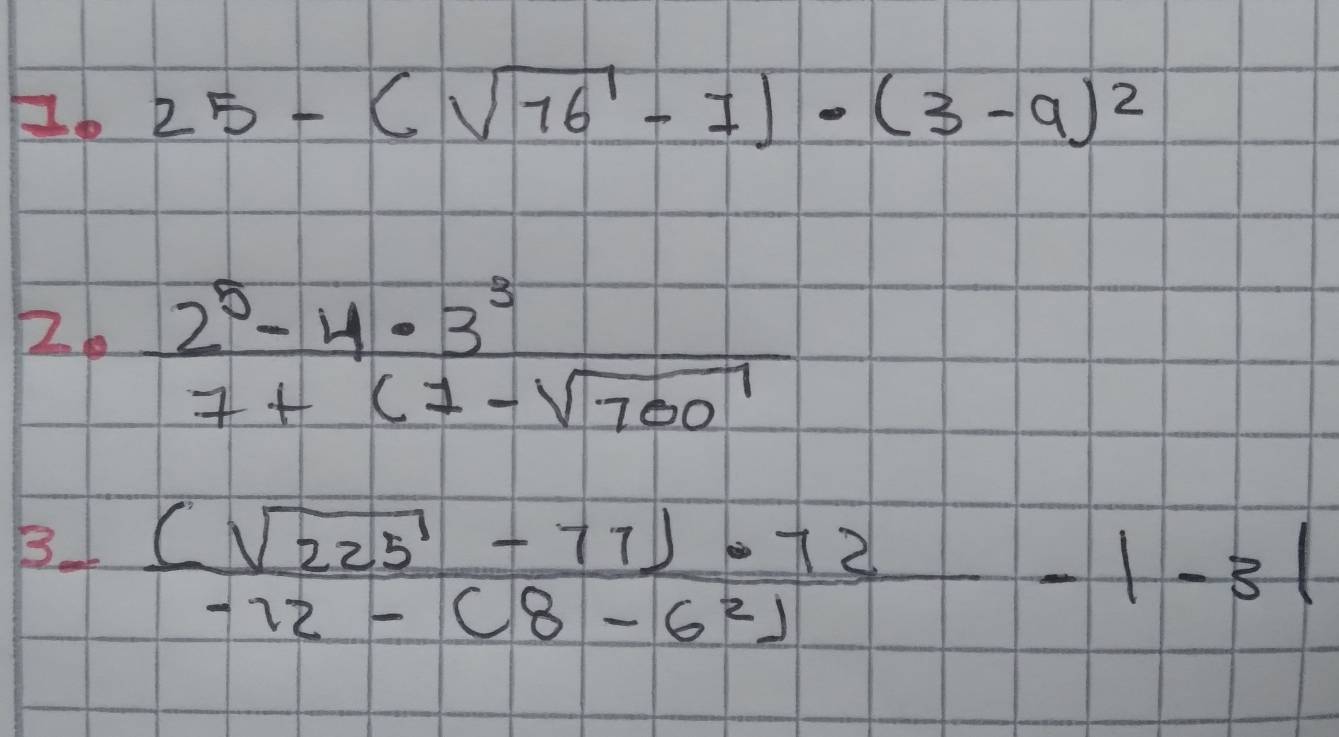 1. 25 - (√16 - 1) · (3 - 9)²
2. 2⁵ - 4 · 3³
7 + (1 - √100
3- (√225 - 11) · 12 - |-3|
-12 - (8 - 6²)